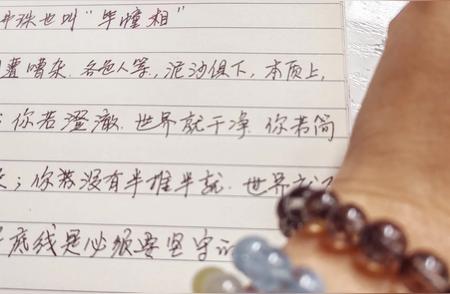 珠也叫“憧相”
遭嘈杂，各色人等，泥沙俱下，本质上，
：你若澄澈，世界就干净，你若简
；你若没有半推半就，世界
底线是必须要坚守